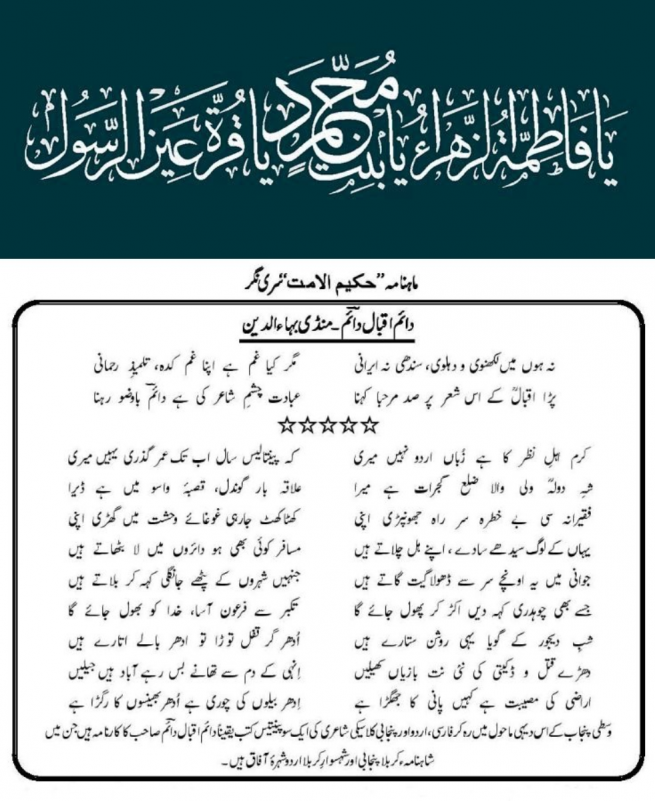 يَا فَاطِمَةُ الزَّهْرَاءُ يَا بِنْتَ مُحَمَّدٍ يَا قُرَّةَ عَيْنِ الرَّسُولِ
ماہنامہ ”حکیم الامت“ سری نگر
دائم اقبال دائمؔ ۔ منڈی بہاءالدین
نہ ہوں میں لکھنوی و دہلوی، سندھی نہ ایرانی مگر کیا غم ہے اپنا غم کدہ، تلمیذِ رحمانی
پڑا اقبالؒ کے اس شعر پر صد مرحبا کہنا عبادت چشمِ شاعر کی ہے دائمؔ باوضو رہنا
☆☆☆☆☆
کرم اہلِ نظر کا ہے زُباں اردو نہیں میری کہ پینتالیس سال اب تک عمر گذری یہیں میری
شہِ دولہؒ ولی والا ضلع گجرات ہے میرا علاقہ بار گوندل، قصبۂ واسو میں ہے ڈیرا
فقیرانہ سی بے خطرہ سرِ راہ جھونپڑی اپنی کھٹا کھٹ جارہی غوغائے وحشت میں گھڑی اپنی
یہاں کے لوگ سیدھے سادے، اپنے ہل چلاتے ہیں مسافر کوئی بھی ہو دائروں میں لا بٹھاتے ہیں
جوانی میں یہ اونچے سر سے ڈھولا گیت گاتے ہیں جنہیں شہروں کے پٹھے جانگلی کہہ کر بلاتے ہیں
جسے بھی چوہدری کہہ دیں اکڑ کر پھول جائے گا تکبر سے فرعون آسا، خدا کو بھول جائے گا
شبِ دیجور کے گویا یہی روشن ستارے ہیں اُدھر گر قفل توڑا تو ادھر ہالے اتارے ہیں
دھڑے قتل و ڈکیتی کی نئی نت بازیاں کھیلیں انہی کے دم سے تھانے بس رہے آباد ہیں جیلیں
اراضی کی مصیبت ہے کہیں پانی کا جھگڑا ہے اِدھر بیلوں کی چوری ہے اُدھر بھینسوں کا رگڑا ہے
وسطی پنجاب کے اس دیہی ماحول میں رہ کر فارسی، اردو اور پنجابی کلاسیکی شاعری کی ایک سو پینتیس کتب یقیناً دائم اقبال دائمؔ صاحب کا کارنامہ ہیں جن میں
شاہنامہء کربلا پنجابی اور شہسوارِ کربلا اردو شہرۂ آفاق ہیں۔